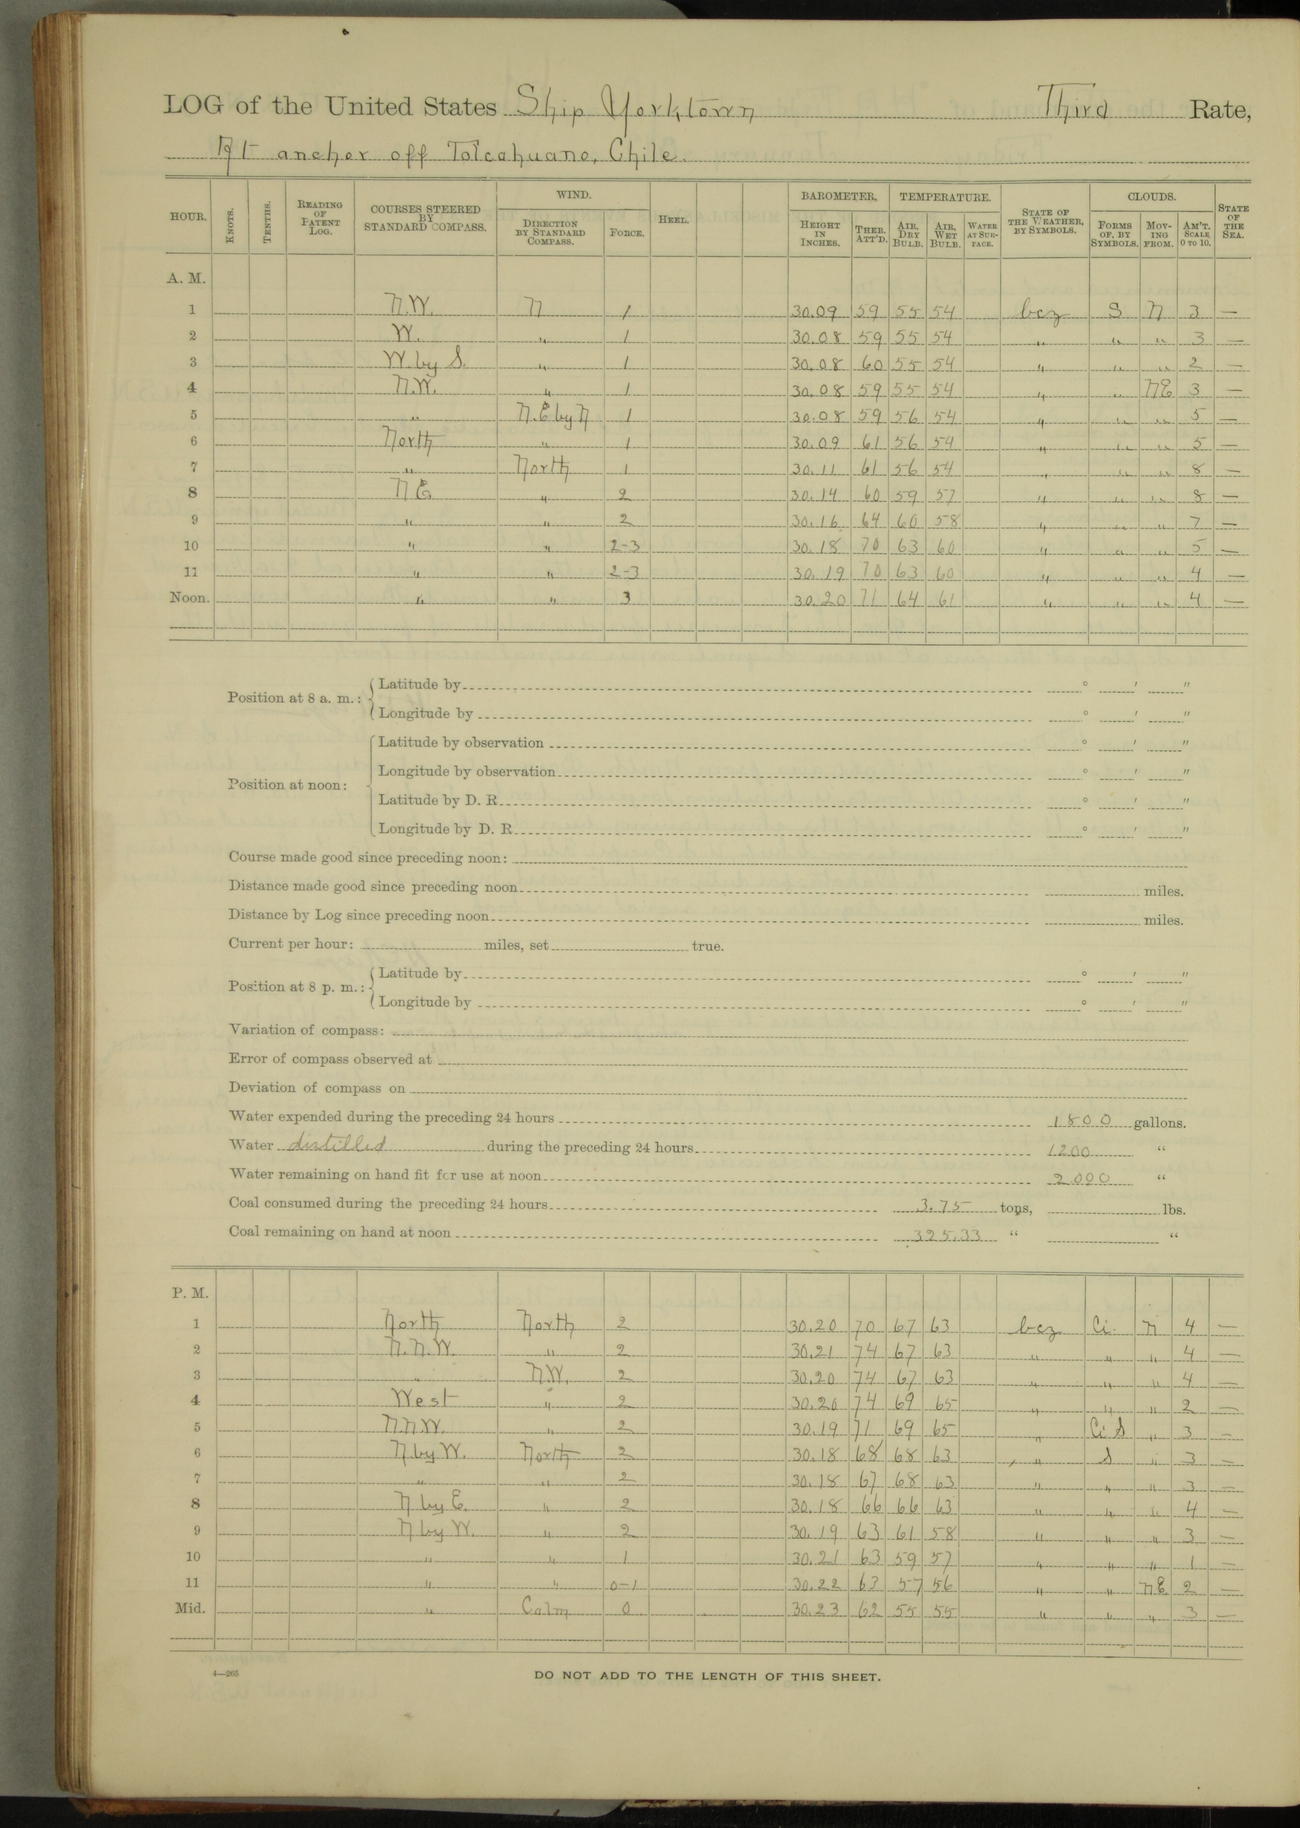 LOG of the United States Ship Yorktown Third Rate,
At anchor off Talcahuano, Chile.
HOUR. KNOTS. TENTHS. READING OF PATENT LOG. COURSES STEERED BY STANDARD COMPASS. WIND. DIRECTION BY STANDARD COMPASS. FORCE. HEEL. BAROMETER. HEIGHT IN INCHES. THER. ATT'D. TEMPERATURE. AIR, DRY BULB. AIR, WET BULB. WATER AT SURFACE. STATE OF THE WEATHER, BY SYMBOLS. CLOUDS. FORMS OF, BY SYMBOLS. MOVING FROM. AM'T. SCALE 0 TO 10. STATE OF THE SEA.
A. M.
1 N.W. N 1 30.09 59 55 54 bcz S N 3 —
2 W. " 1 30.08 59 55 54 " " " 3 —
3 W. by S. " 1 30.08 60 55 54 " " " 2 —
4 N.W. " 1 30.08 59 55 54 " " NE 3 —
5 " N.E by N 1 30.08 59 56 54 " " " 5 —
6 North " 1 30.09 61 56 54 " " " 5 —
7 " North 1 30.11 61 56 54 " " " 8 —
8 N E " 2 30.14 60 59 57 " " " 8 —
9 " " 2 30.16 64 60 58 " " " 7 —
10 " " 2-3 30.18 70 63 60 " " " 5 —
11 " " 2-3 30.19 70 63 60 " " " 4 —
Noon. " " 3 30.20 71 64 61 " " " 4 —
Position at 8 a. m.: Latitude by ° ' "
Longitude by ° ' "
Position at noon: Latitude by observation ° ' "
Longitude by observation ° ' "
Latitude by D. R. ° ' "
Longitude by D. R. ° ' "
Course made good since preceding noon:
Distance made good since preceding noon miles.
Distance by Log since preceding noon miles.
Current per hour: miles, set true.
Position at 8 p. m.: Latitude by ° ' "
Longitude by ° ' "
Variation of compass:
Error of compass observed at
Deviation of compass on
Water expended during the preceding 24 hours 1800 gallons.
Water distilled during the preceding 24 hours 1200 "
Water remaining on hand fit for use at noon 2000 "
Coal consumed during the preceding 24 hours 3.75 tons, lbs.
Coal remaining on hand at noon 325.33 " "
P. M.
1 North North 2 30.20 70 67 63 bcz Ci. N 4 —
2 N.N.W. " 2 30.21 74 67 63 " " " 4 —
3 " NW. 2 30.20 74 67 63 " " " 4 —
4 West " 2 30.20 74 69 65 " " " 2 —
5 N.N.W. " 2 30.19 71 69 65 " Ci S " 3 —
6 N. by W. North 2 30.18 68 68 63 " S " 3 —
7 " " 2 30.18 67 68 63 " " " 3 —
8 N by E. " 2 30.18 66 66 63 " " " 4 —
9 N by W. " 2 30.19 63 61 58 " " " 3 —
10 " " 1 30.21 63 59 57 " " " 1 —
11 " " 0-1 30.22 63 57 56 " " NE 2 —
Mid. " Calm 0 30.23 62 55 55 " " " 3 —
4—265
DO NOT ADD TO THE LENGTH OF THIS SHEET.